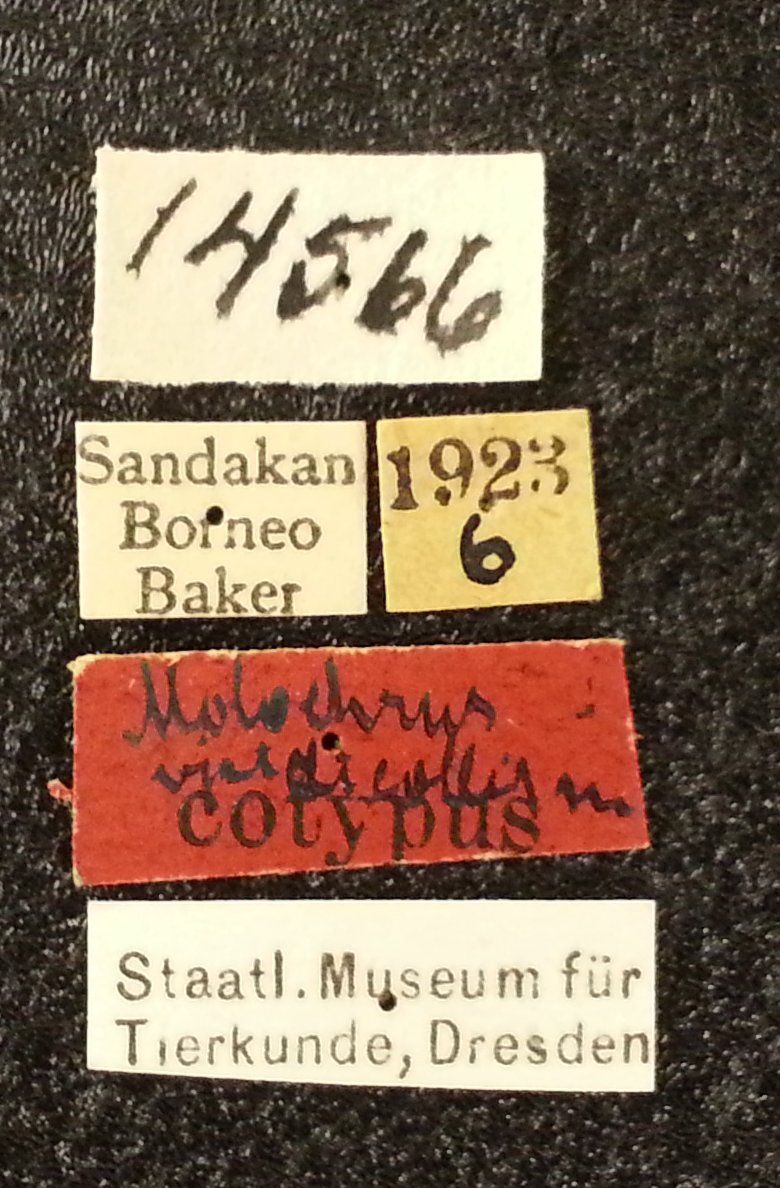 14566
Sandakan
Borneo
Baker
1923
6
Molochrus
viridicollis m
cotypus
Staatl. Museum für
Tierkunde, Dresden